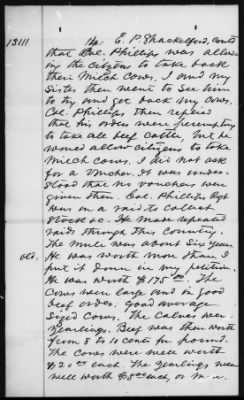 13111
16. E. P. Shackelford, contd
that Col. Phillips was allow-
ing the citizens to take back
their Milch Cows. I and my
Sister then went to see him
to try and get back my cows.
Col. Phillips then replied
that his orders were peremptory
to take all beef cattle, but he
would allow citizens to take
Milch Cows. I did not ask
for a Voucher. It was under-
stood that no vouchers were
given then. Col. Phillips Regt
was on a raid to collect
Stock &c. He made repeated
raids through this country.
The mule was about Six years
old. He was worth more than I
put it down in my petition.
He was worth $175.00. The
Cows were large and in good
beef order, good average
sized Cows. The Calves were
Yearlings. Beef was then worth
from 8 to 10 cents per pound.
The cows were well worth
$20.00 each. The yearlings were
well worth $8.00 each, or more